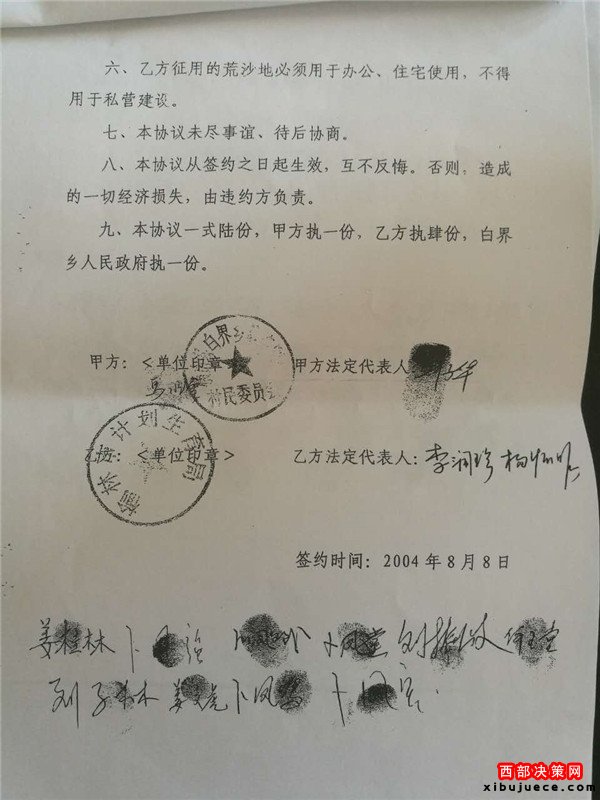 六、乙方征用的荒沙地必须用于办公、住宅使用，不得
用于私营建设。
七、本协议未尽事谊、待后协商。
八、本协议从签约之日起生效，互不反悔。否则，造成
的一切经济损失，由违约方负责。
九、本协议一式陆份，甲方执一份，乙方执肆份，白界
乡人民政府执一份。
白界乡
村民委员会
甲方：＜单位印章＞ 甲方法定代表人：
计划生育局
乙方：＜单位印章＞ 乙方法定代表人：李润珍
签约时间：2004年8月8日
姜桂林
西部决策网
xibujuece.com